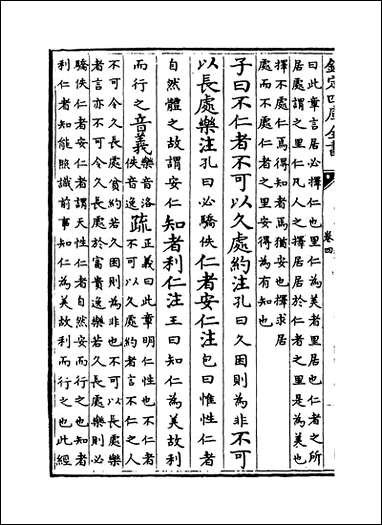 欽定四庫全書
卷四
曰此章言居必擇仁也里仁為美者里居也仁者之所
居處謂之里仁凡人之擇居居於仁者之里是為美也
擇不處仁焉得知者焉猶安也擇求居
處而不處仁者之里安得為有知也
子曰不仁者不可以久處約注孔曰久困則為非不可
以長處樂注孔曰必驕佚仁者安仁注包曰惟性仁者
自然體之故謂安仁知者利仁注王曰知仁為美故利
而行之音義樂音洛佚音逸疏正義曰此章明仁性也不仁者不可以久處約者言不仁之人
不可令久長處貧約若久困則為非也不可以長處樂
者言亦不可令久長處於富貴逸樂若久長處樂則必
驕佚仁者安仁者謂天性仁者自然安而行之也知者
利仁者知能照識前事知仁為美故利而行之也此經